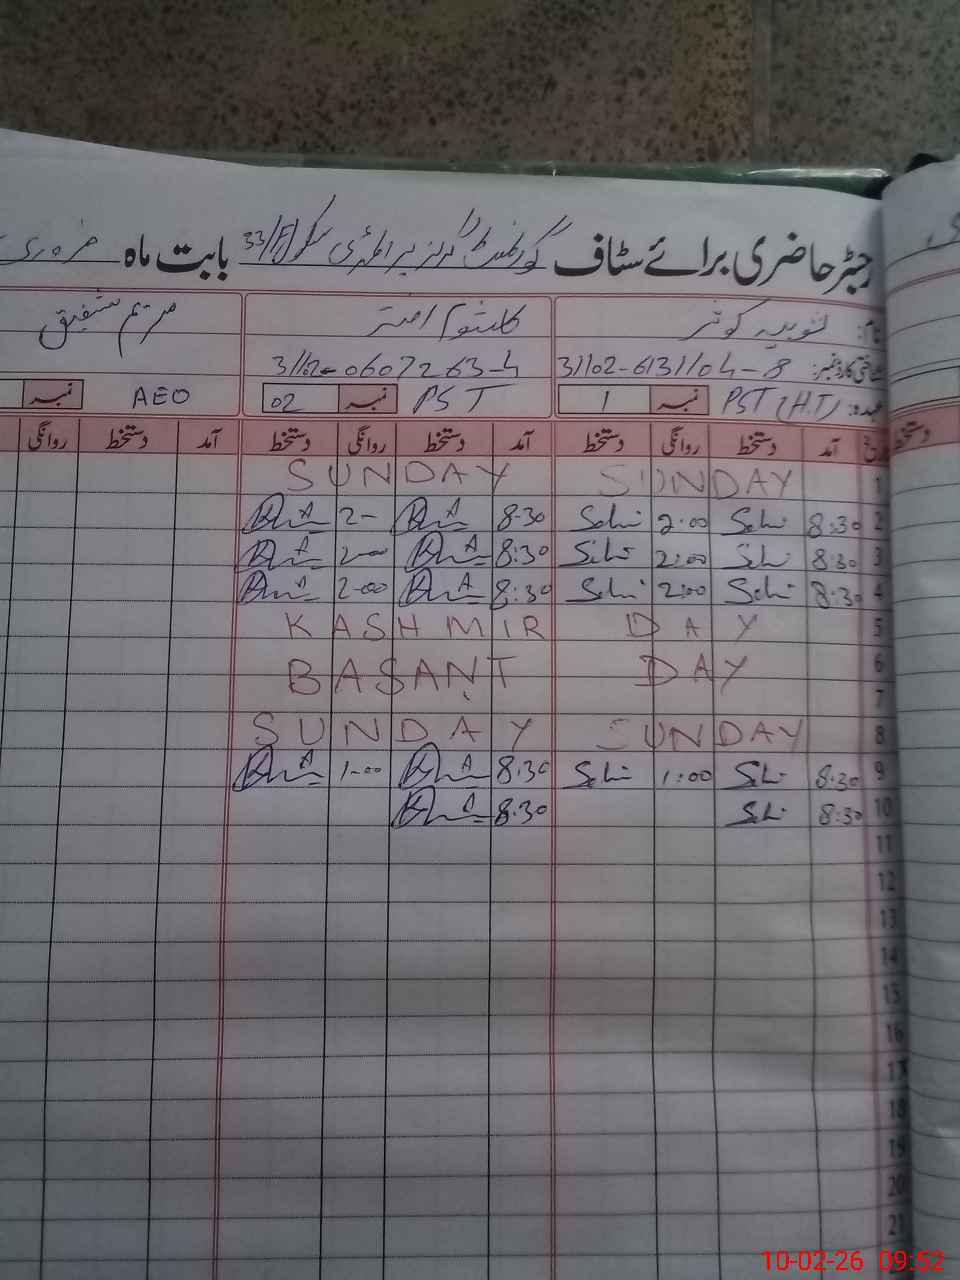 رجسٹر حاضری برائے سٹاف گورنمنٹ گرلز پرائمری سکول 33/F بابت ماہ فروری
نام: کوثر کلثوم اختر مریم شفیق
شناختی کارڈ نمبر: 31102-6131104-8 31102-0607263-4
عہدہ: PST (H.T) نمبر 1 PST نمبر 02 AEO نمبر
تاریخ آمد دستخط روانگی دستخط آمد دستخط روانگی دستخط آمد دستخط روانگی
1 SUNDAY SUNDAY
2 8:30 2:00 8-30 2-
3 8:30 2:00 8:30 2-00
4 8:30 2:00 8:30 2-00
5 KASHMIR DAY
6 BASANT DAY
7
8 SUNDAY SUNDAY
9 8:30 1:00 8:30 1-00
10 8:30 8:30
11
12
13
14
15
16
17
18
19
20
21
دستخط
10-02-26 09:52